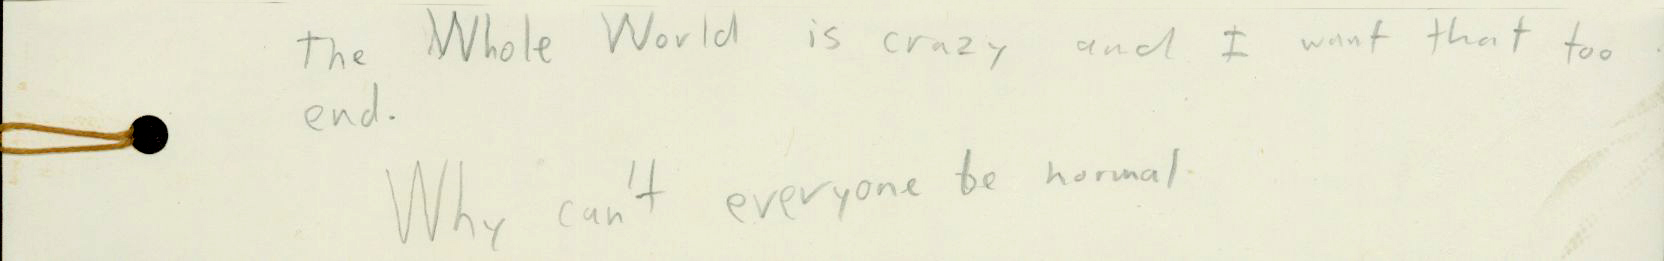 The Whole World is crazy and I want that too
end.
Why can't everyone be normal